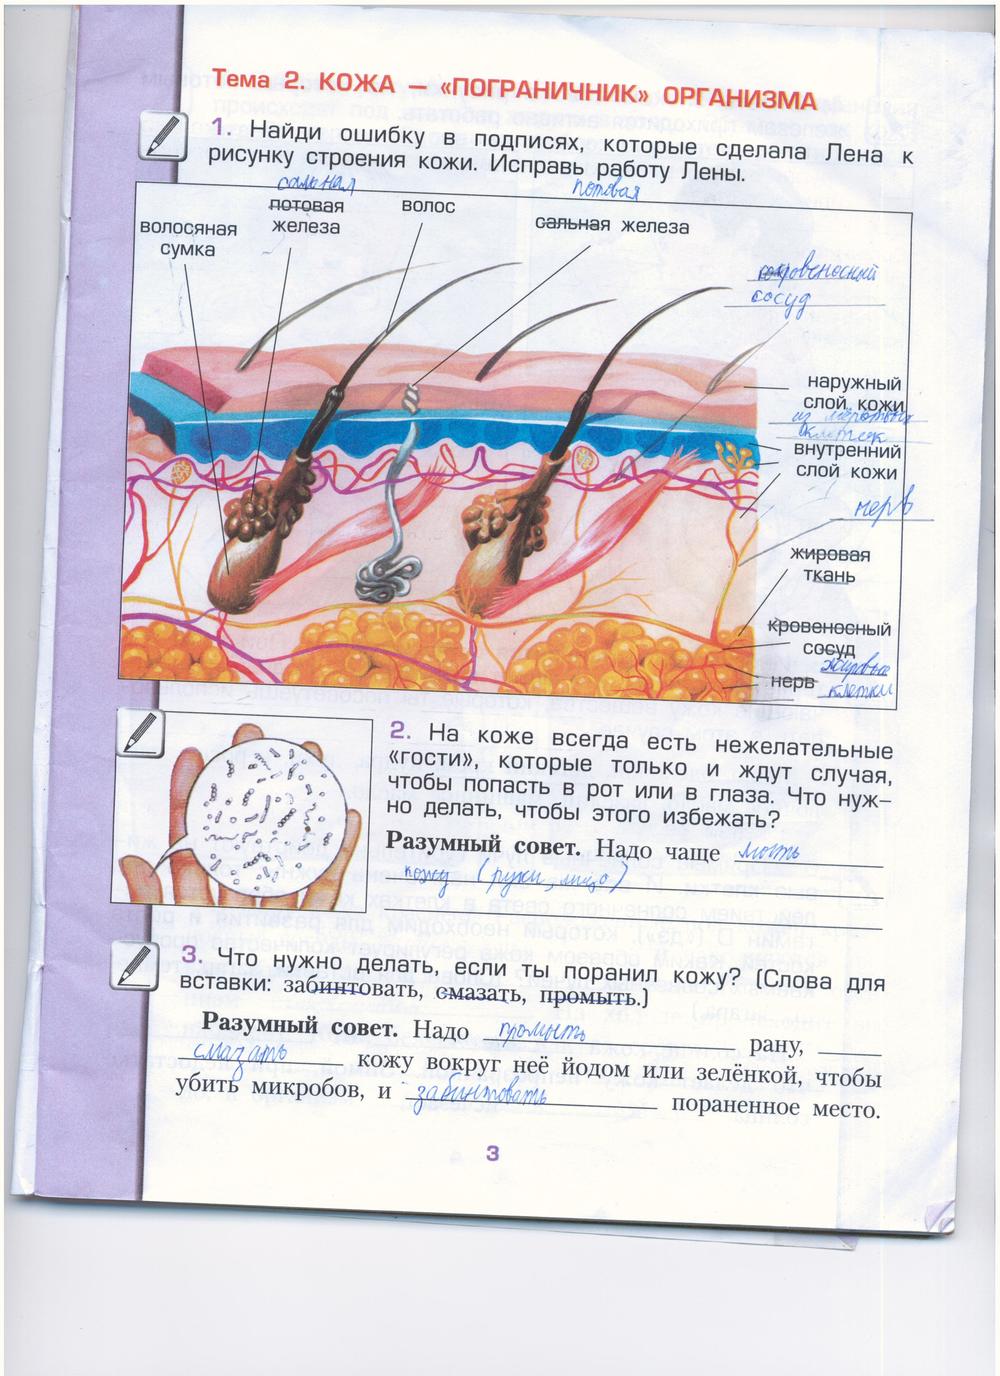 Тема 2. КОЖА — «ПОГРАНИЧНИК» ОРГАНИЗМА
1. Найди ошибку в подписях, которые сделала Лена к
рисунку строения кожи. Исправь работу Лены.
сальная
потовая
железа
волосяная
сумка
волос
потовая
сальная железа
кровеносный
сосуд
наружный
слой кожи
из мёртвых
клеток
внутренний
слой кожи
нерв
жировая
ткань
кровеносный
сосуд
жировые
нерв клетки
2. На коже всегда есть нежелательные
«гости», которые только и ждут случая,
чтобы попасть в рот или в глаза. Что нуж-
но делать, чтобы этого избежать?
Разумный совет. Надо чаще мыть
кожу (руки, лицо)
3. Что нужно делать, если ты поранил кожу? (Слова для
вставки: забинтовать, смазать, промыть.)
Разумный совет. Надо промыть рану,
смазать кожу вокруг неё йодом или зелёнкой, чтобы
убить микробов, и забинтовать пораненное место.
3